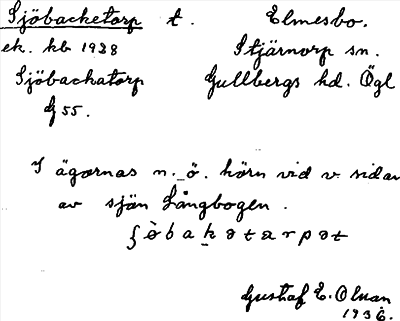 Sjöbacketorp t. Elmesbo.
ek. kb 1928 Stjärnorp sn.
Sjöbackatorp Gullbergs hd. Ögl
G 55.
I ägornas n. ö. hörn vid v. sidan
av sjön Långbogen.
ʃö̀bakətɑrpət
Gustaf E. Olsan
1936.